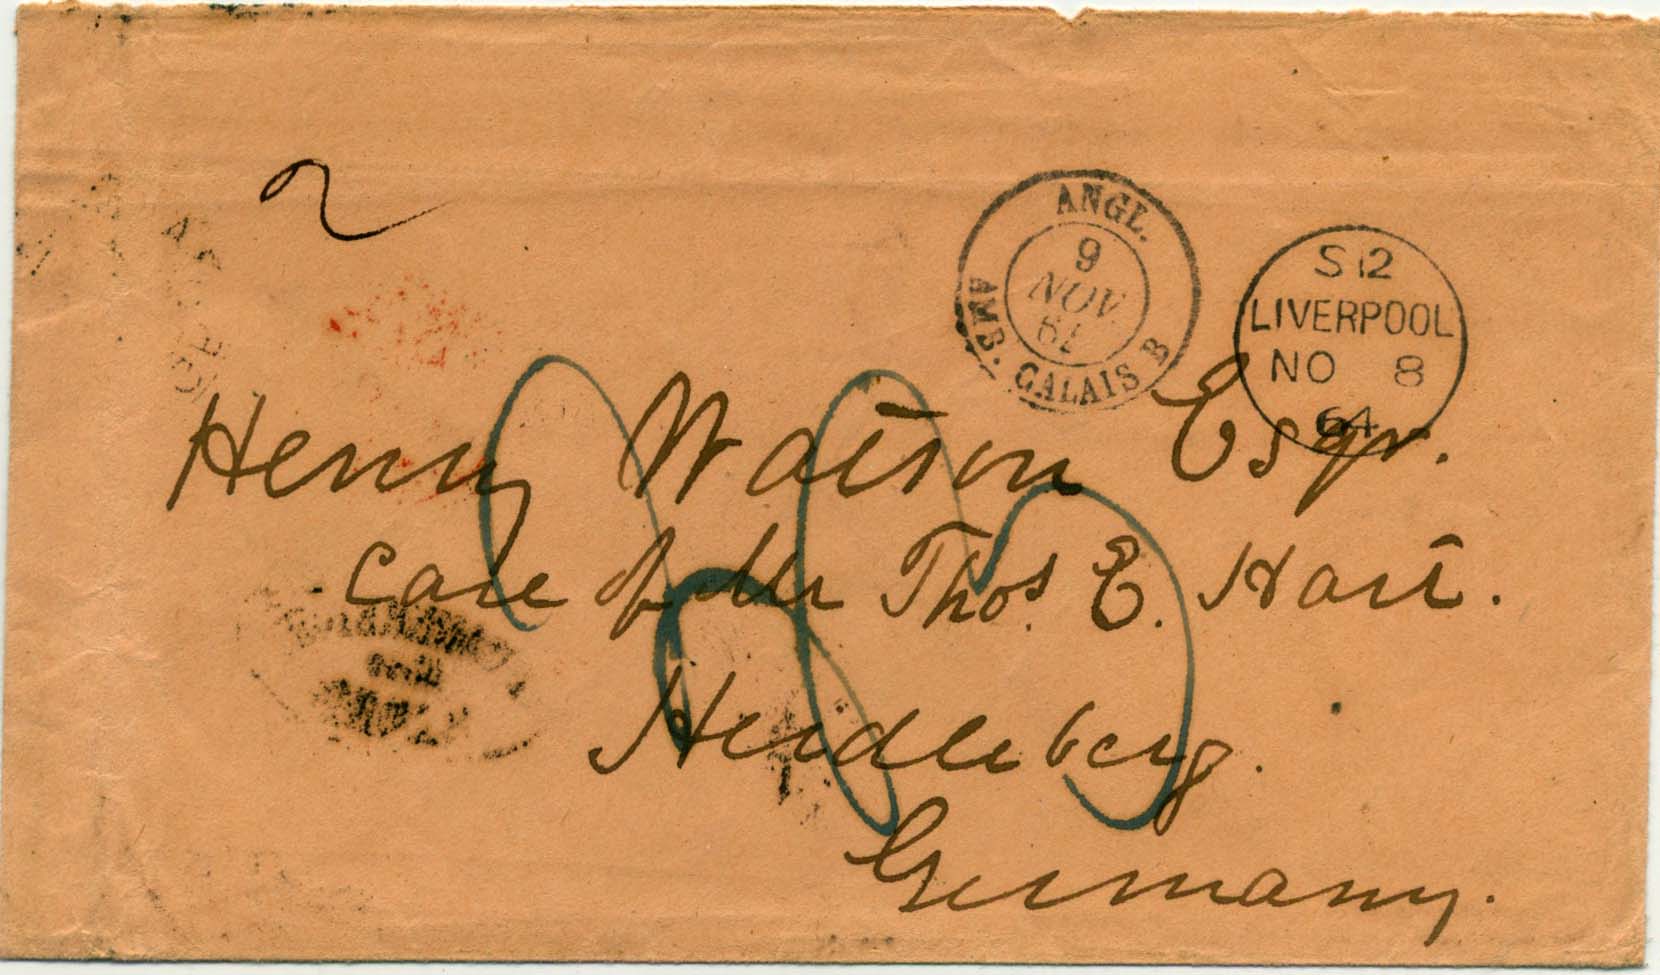 2
ANGL.
9
NOV.
61
AMB. CALAIS B
S 12
LIVERPOOL
NO 8
64
Henry Watson Esqr.
Care of Mr Thos. E. Hart.
Heidleberg.
Germany.